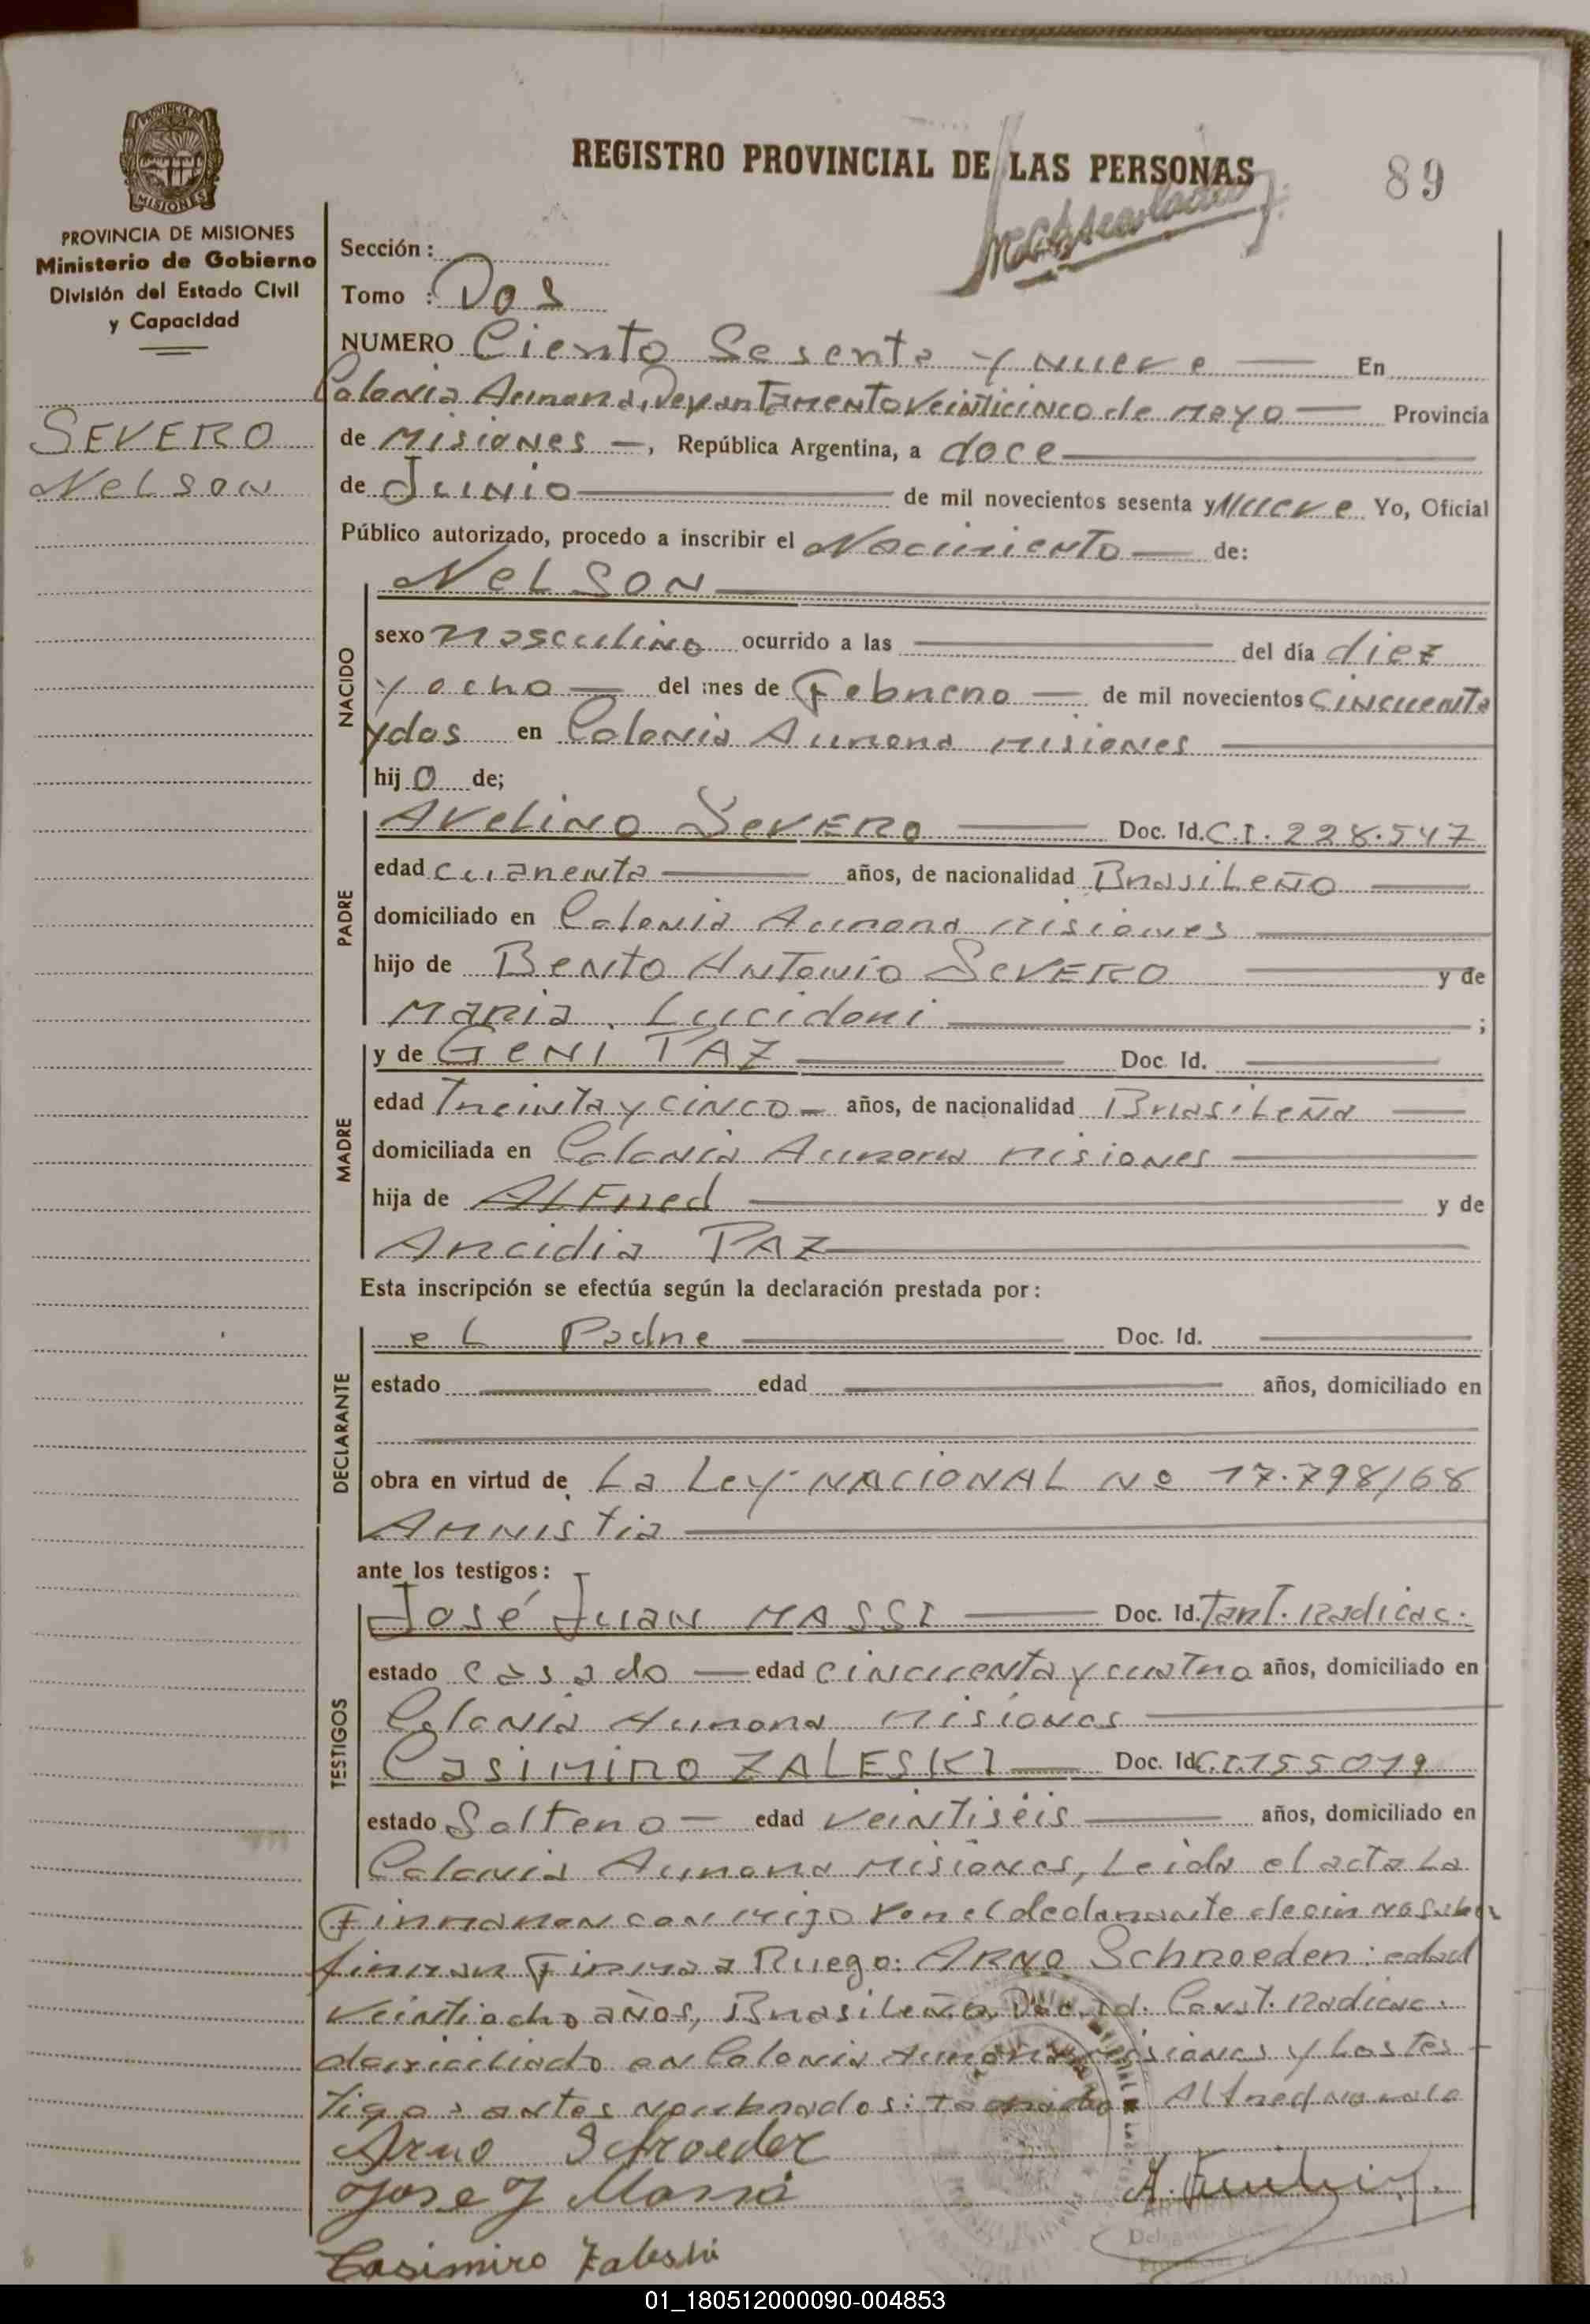 PROVINCIA DE MISIONES
REGISTRO PROVINCIAL DE LAS PERSONAS
89
PROVINCIA DE MISIONES
Ministerio de Gobierno
División del Estado Civil
y Capacidad
SEVERO
Nelson
Sección :
Tomo : Dos
NUMERO Ciento Sesenta y nueve En
Colonia Aurora, Departamento Veinticinco de Mayo Provincia
de Misiones, República Argentina, a doce
de Junio de mil novecientos sesenta y Nueve Yo, Oficial
Público autorizado, procedo a inscribir el Nacimiento de:
NELSON
NACIDO
sexo Masculino ocurrido a las del día diez
y ocho del mes de Febrero de mil novecientos cincuenta
y dos en Colonia Aurora Misiones
hijo de;
PADRE
Avelino SEVERO Doc. Id. C.I. 228.547
edad cuarenta años, de nacionalidad Brasileño
domiciliado en Colonia Aurora Misiones
hijo de Bento Antonio SEVERO y de
Maria Lucidoni ;
MADRE
y de GENI PAZ Doc. Id.
edad Treinta y cinco años, de nacionalidad Brasileña
domiciliada en Colonia Aurora Misiones
hija de Alfred y de
Arcidia PAZ
Esta inscripción se efectúa según la declaración prestada por:
DECLARANTE
el Padre Doc. Id.
estado edad años, domiciliado en
obra en virtud de La Ley NACIONAL Nº 17.798/68
Amnistia
ante los testigos:
TESTIGOS
José Juan MASSI Doc. Id. Tant. Radicac.
estado casado edad cincuenta y cuatro años, domiciliado en
Colonia Aurora Misiones
Casimiro ZALESKI Doc. Id. C.I. 155019
estado Soltero edad veintiséis años, domiciliado en
Colonia Aurora Misiones, Leida el acta La
Firmaron conmigo Por el declarante decir no saber
firmar Firma a Ruego: ARNO Schroeder: edad
veintiocho años, Brasileño, Doc. Id. Const. Radicac.
domiciliado en Colonia Aurora Misiones y Los tes-
tigos antes nombrados: tachado: Alfred no vale
Arno Schroeder
Jose J Massi
Casimiro Zaleski
01_180512000090-004853